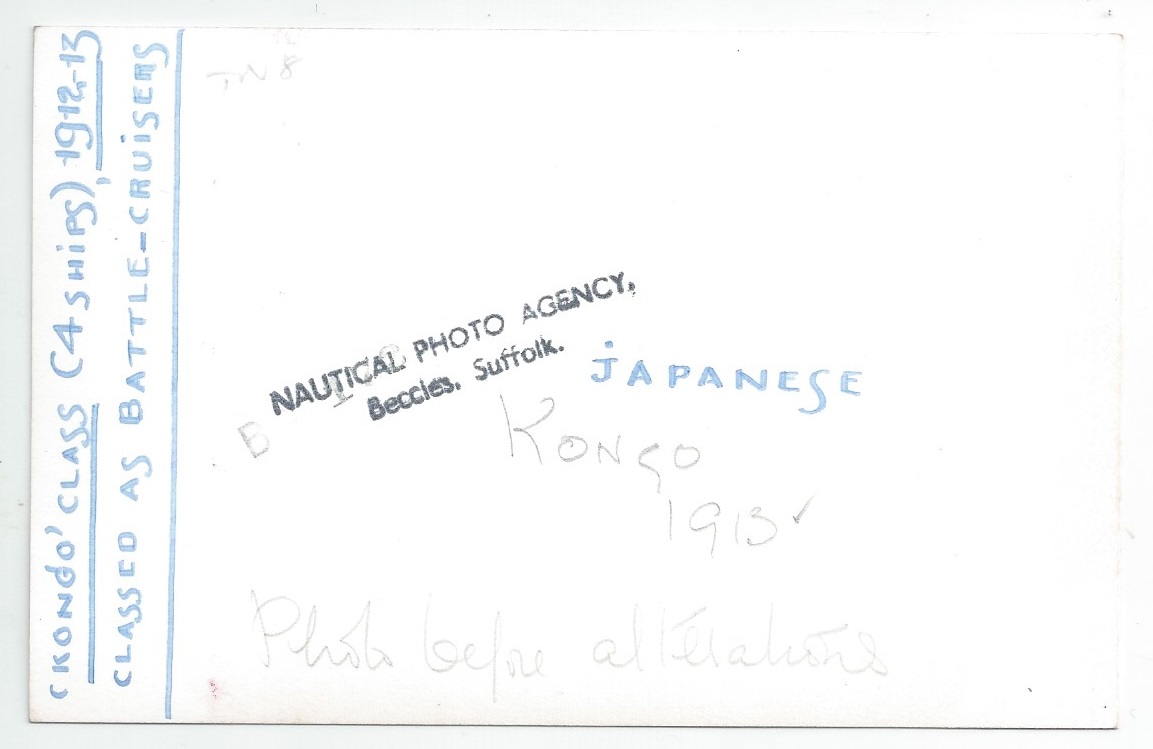 'KONGO' CLASS (4 SHIPS), 1912-13
CLASSED AS BATTLE-CRUISERS
NAUTICAL PHOTO AGENCY,
Beccles. Suffolk.
JAPANESE
KONGO
1913 ✓
Photo before alterations